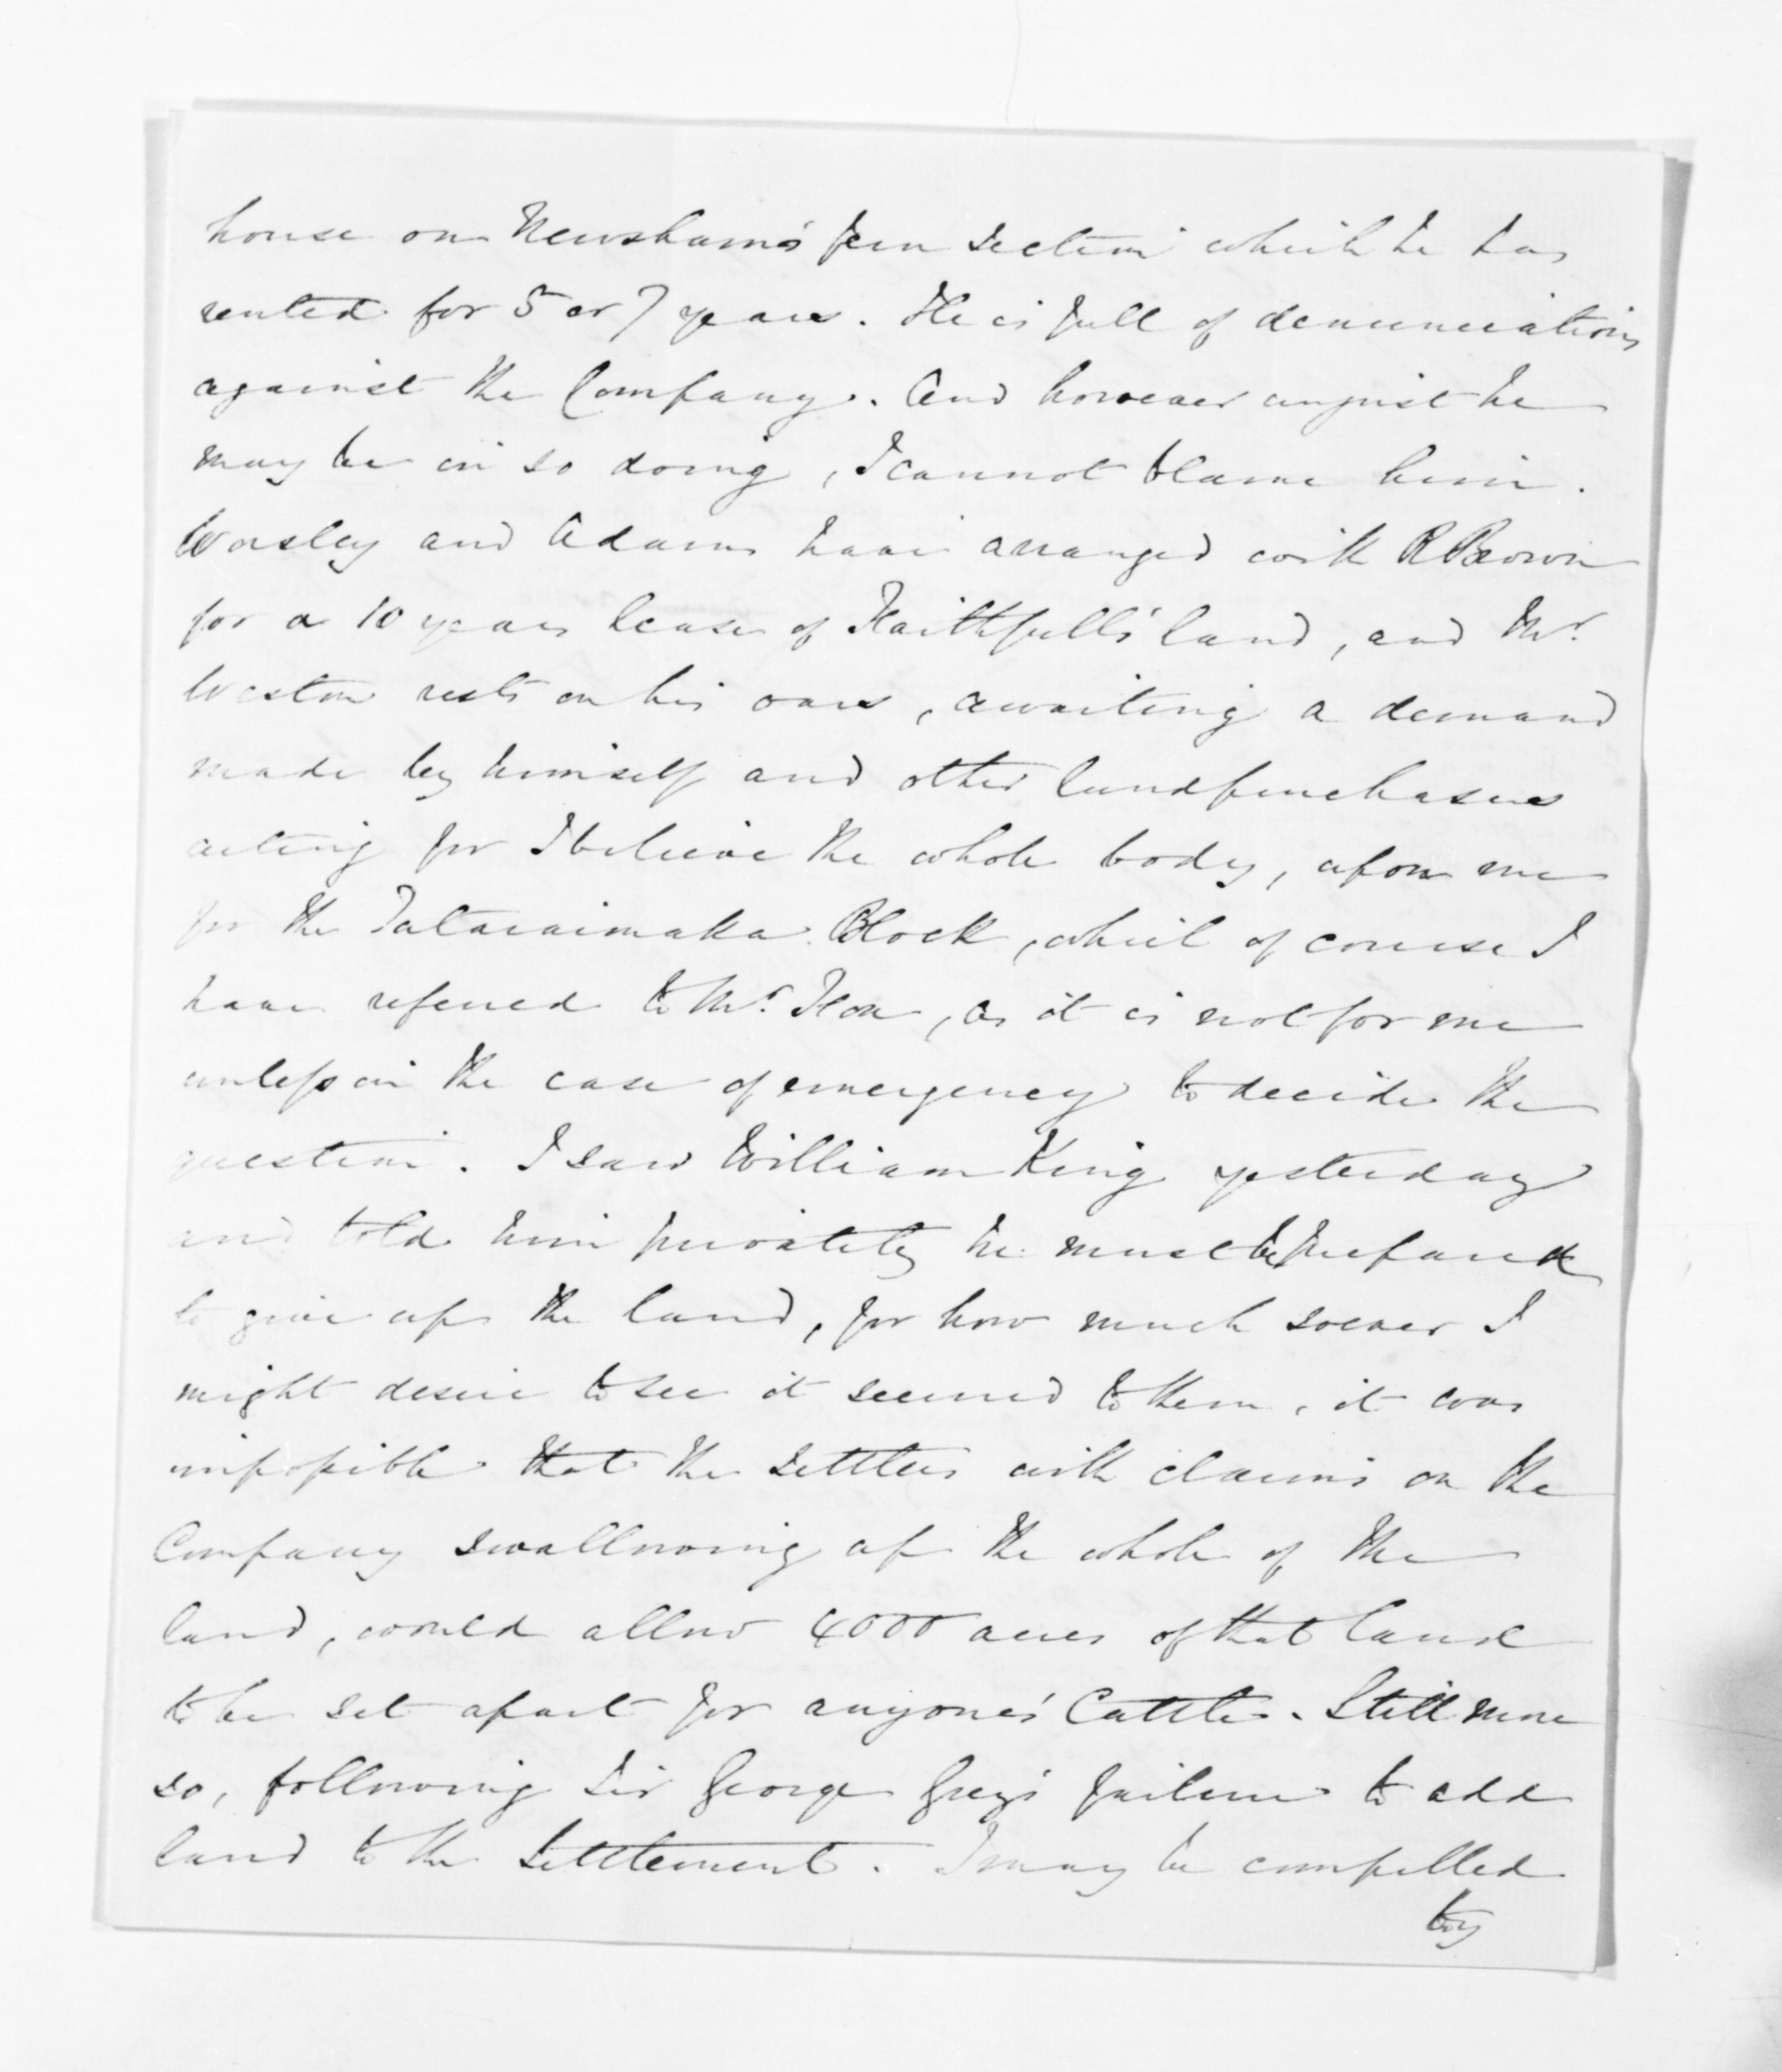 house on Newsham's fern section which he has
rented for 5 or 7 years. He is full of denunciations
against the Company. And however unjust he
may be in so doing, I cannot blame him.
Worsley and Adams have arranged with R Brown
for a 10 years lease of Faithfull's land, and Mr.
Weston rests on his oars, awaiting a demand
made by himself and other landpurchasers
acting for I believe the whole body, upon me
for the Tataraimaka Block, which of course I
have referred to Mr. , as it is not for me
unless in the case of emergency to decide the
question. I saw William King yesterday
and told him privately he must be prepared
to give up the land, for how much soever I
might desire to see it secured to them, it was
impossible that the settlers with claims on the
Company swallowing up the whole of the
land, would allow 4000 acres of that land
to be set apart for anyone's Cattle. Still more
so, following Sir George Grey's failure to add
land to the Settlement. I may be compelled
by